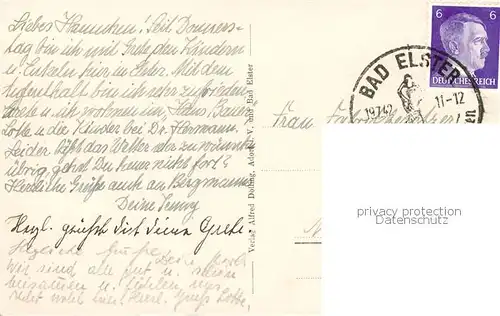 Liebes Hannchen! Seit Donners-
tag bin ich mit Grete den Kindern
u. Enkeln hier in Elster. Mit dem
Aufenthalt bin ich sehr zufrieden.
Grete u. ich wohnen im "Haus Bauer"
Lotte u. die Kinder bei Dr. Hermann.
Leider läßt das Wetter sehr zu wünschen
übrig, gehst Du heuer nicht fort?
Herzliche Grüße auch an Bergmanns
Deine
Herzl. grüßt dich deine Grete.
Herzliche Grüße Deine
Wir sind alle gut u. schön
beisammen u. fühlen uns
sehr wohl hier. Herzl. Gruß Lotte.
Verlag Alfred Dölling, Adorf i. V. und Bad Elster
6 6
DEUTSCHES REICH
BAD ELSTER
11-12
Frau
privacy protection
DATENSCHUTZ